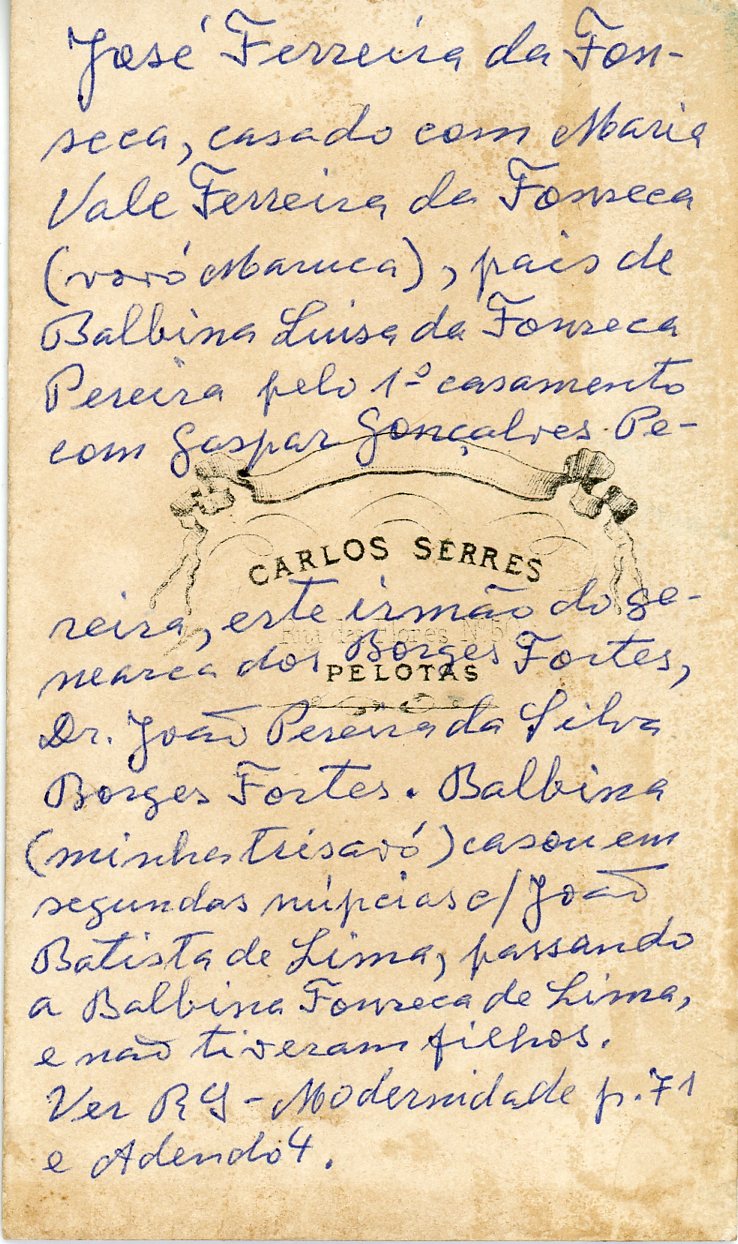 José Ferreira da Fon-
seca, casado com Maria
Vale Ferreira da Fonseca
(vovó Maruca), pais de
Balbina Luisa da Fonseca
Pereira pelo 1º casamento
com Gaspar Gonçalves Pe-
CARLOS SERRES
reira, este irmão do ge-
Rua das Flores N.
nearca dos Borges Fortes,
PELOTAS
Dr. João Pereira da Silva
Borges Fortes. Balbina
(minha trisavó) casou em
segundas núpcias c/ João
Batista de Lima, passando
a Balbina Fonseca de Lima,
e não tiveram filhos.
Ver RG - Modernidade p. 71
e Adendo 4.